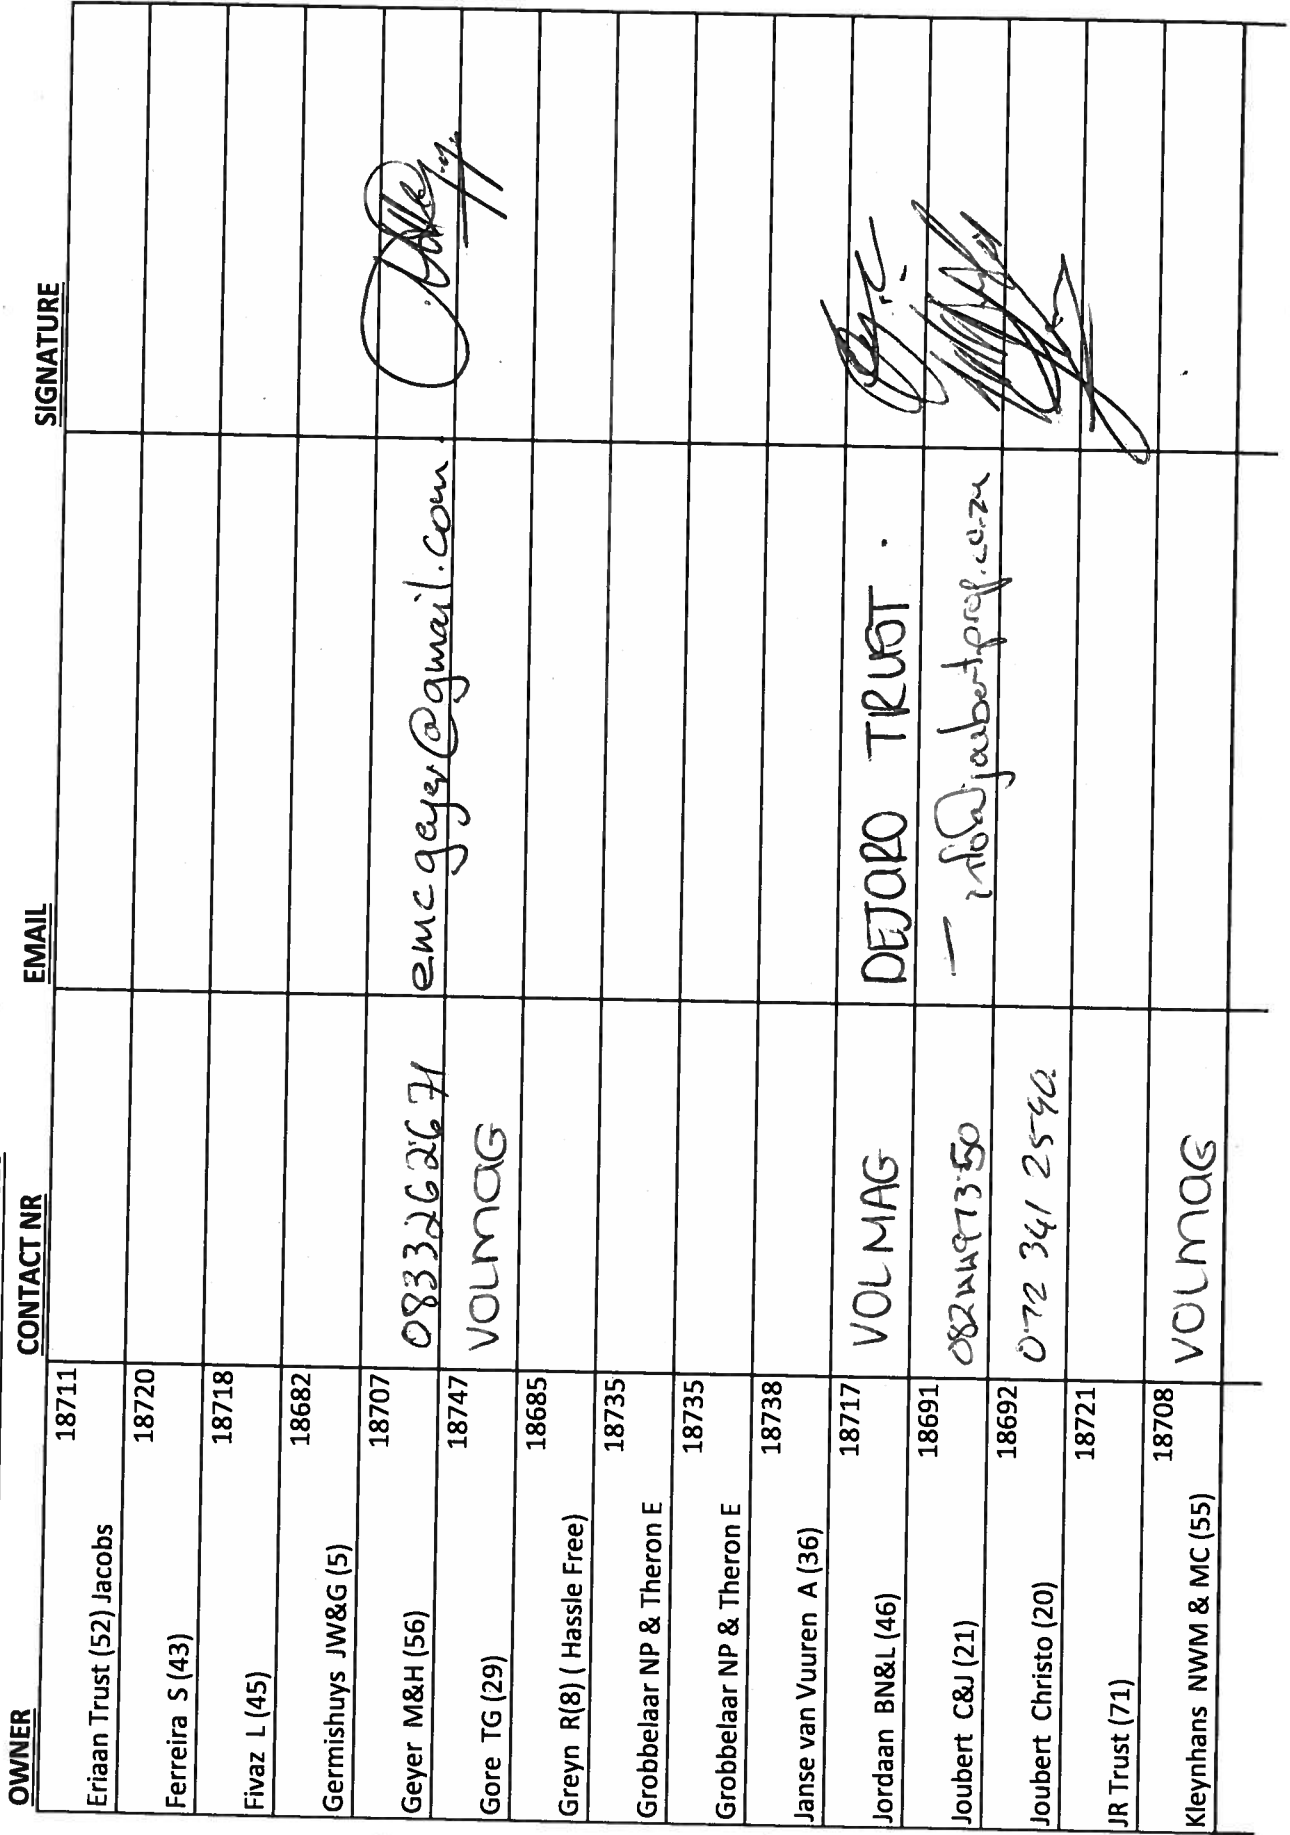 OWNER CONTACT NR EMAIL SIGNATURE
Eriaan Trust (52) Jacobs 18711
Ferreira S (43) 18720
Fivaz L (45) 18718
Germishuys JW&G (5) 18682
Geyer M&H (56) 18707 0833262671 emcgeyer@gmail.com
Gore TG (29) 18747 VOLMAG
Greyn R(8) ( Hassle Free) 18685
Grobbelaar NP & Theron E 18735
Grobbelaar NP & Theron E 18735
Janse van Vuuren A (36) 18738
Jordaan BN&L (46) 18717 VOLMAG DEJORO TRUST .
Joubert C&J (21) 18691 0824497350 - info@joubertprop.co.za
Joubert Christo (20) 18692 072 341 2540
JR Trust (71) 18721
Kleynhans NWM & MC (55) 18708 VOLMAG